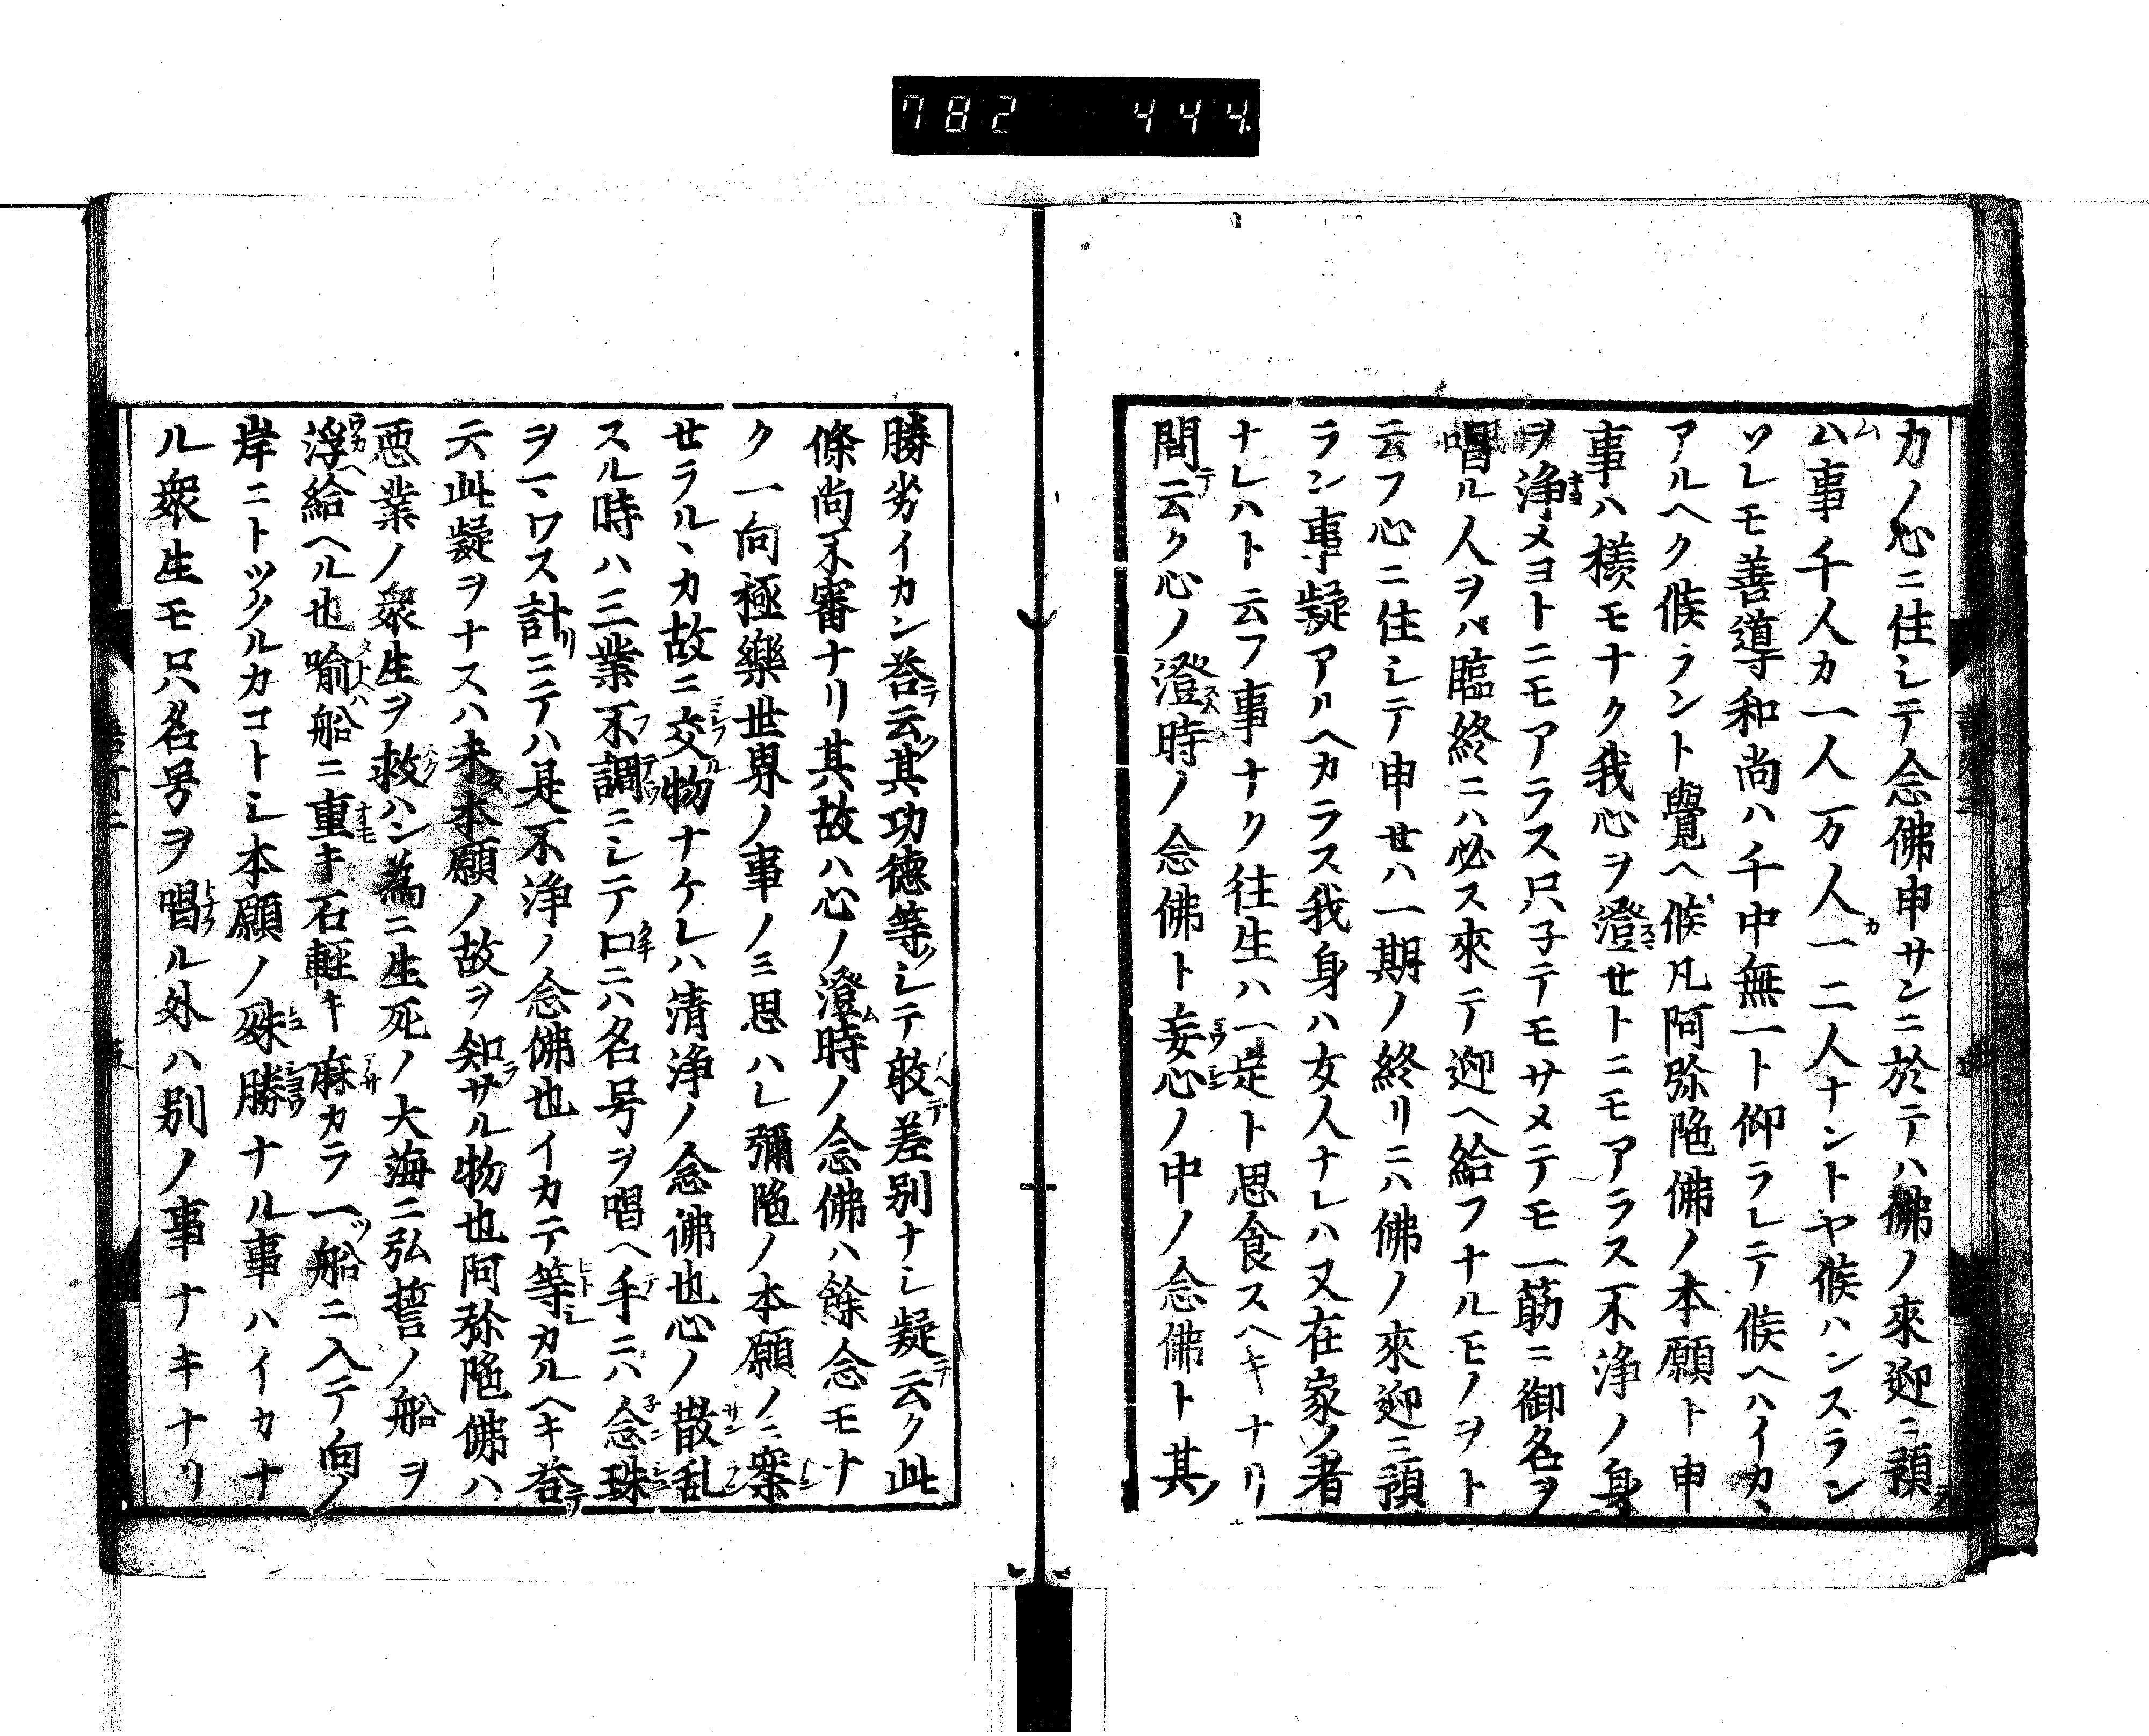 782 444
カノ心ニ住シテ念佛申サンニ於テハ佛ノ來迎ニ預ラ
ム事ノ千人カ一人万人カ一二人ナントヤ候ハンスラン
ソレモ善導和尚ハ千中無一ト仰ラレテ候ヘハイカヽ
アルヘク候ラント覺ヘ候凡阿弥陁佛ノ本願ト申
事ハ樣モナク我心ヲ澄セトニモアラス不浄ノ身
ヲ浄メヨトニモアラス只子テモサメテモ一筋ニ御名ヲ
唱ル人ヲハ臨終ニハ必ス來テ迎ヘ給フナルモノヲト
云フ心ニ住シテ申セハ一期ノ終リニハ佛ノ來迎ニ預
ラン事疑アルヘカラス我身ハ女人ナレハ又在家ノ者
ナレハト云フ事ナク往生ハ一定ト思食スヘキナリ
問テ云ク心ノ澄時ノ念佛ト妄心ノ中ノ念佛ト其ノ
勝劣イカン荅テ云ク其功德等シテ敢テ差別ナシ疑テ云ク此
條尚不審ナリ其故ハ心ノ澄ム時ノ念佛ハ餘念モナ
ク一向極樂世界ノ事ノミ思ハレ彌陁ノ本願ノミ案
セラルヽカ故ニ交ル物ナケレハ清浄ノ念佛也心ノ散乱
スル時ハ三業不調ニシテ口ニハ名号ヲ唱ヘ手ニハ念珠
ヲマワス計リニテハ是不浄ノ念佛也イカテ等カルヘキ荅テ
云此疑ヲナスハ未タ本願ノ故ヲ知ラサル物也阿弥陁佛ハ
悪業ノ衆生ヲ救ハン為ニ生死ノ大海ニ弘誓ノ船ヲ
浮給ヘル也喩ハ船ニ重キ石軽キ麻カラヲ一ツ船ニ入テ向ノ
岸ニトツクルカコトシ本願ノ殊勝ナル事ハイカナ
ル衆生モ只名号ヲ唱ル外ハ別ノ事ナキナリ